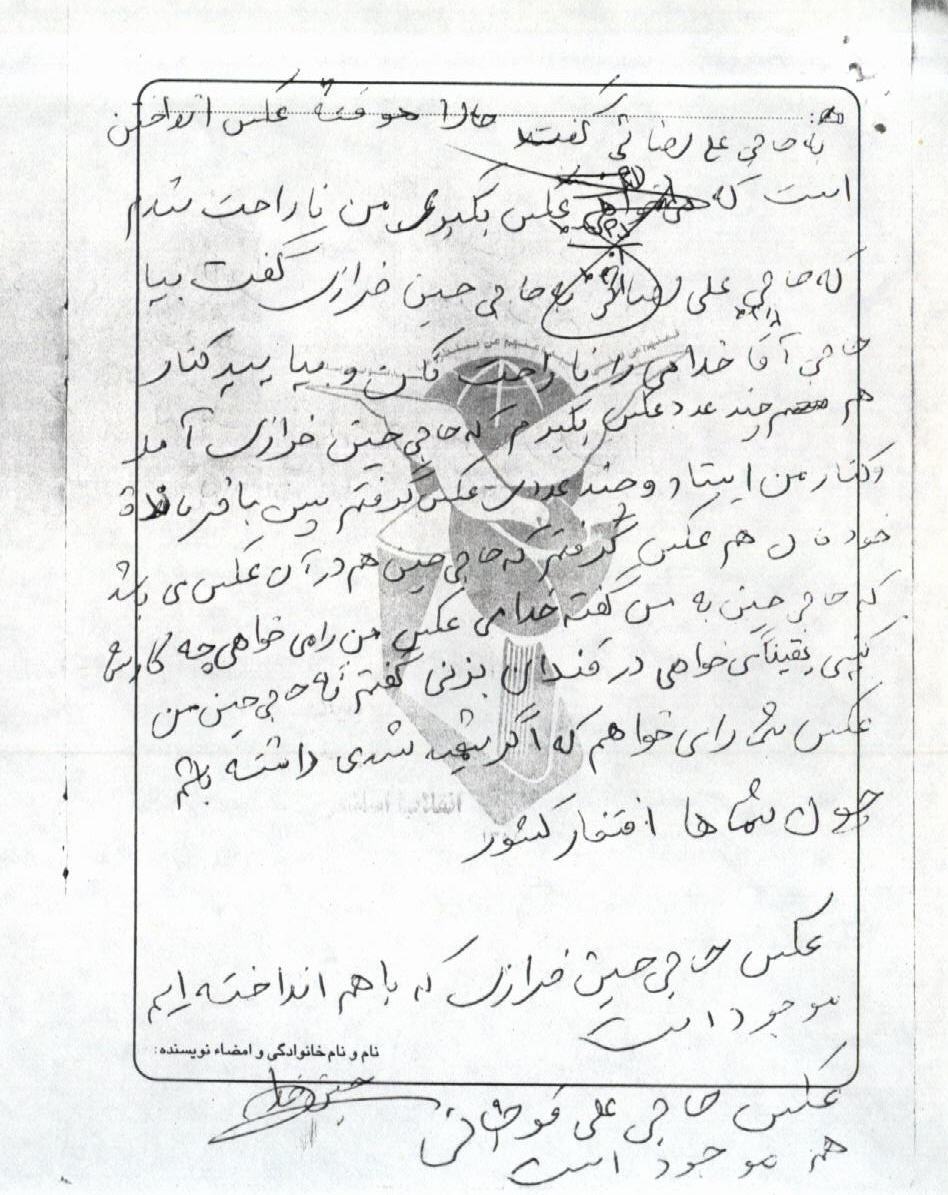 به حاجی علیرضائی گفت حالا چه وقت عکس انداختن
است که عکس بگیری من ناراحت شدم
که حاجی علی به حاجی حسین خرازی گفت بیا
حاجی آقا خدامی را ناراحت نکن و بیایید کنار
هم چند عدد عکس بگیرم که حاجی حسین خرازی آمد
و کنار من ایستاد و چند عدد عکس گرفتم پس با فرمانده
خودمان هم عکس گرفتم که حاجی حسین هم در آن عکس می باشد
که حاجی حسین به من گفته خدامی عکس من را می خواهی چه کارش
کنی یقیناً می خواهی در قندان بزنی گفتم نه حاجی حسین من
عکس شما را می خواهم که اگر شهید شدی داشته باشم
چون شما ها افتخار کشور
عکس حاجی حسین خرازی که با هم انداخته ایم
موجود است
نام و نام خانوادگی و امضاء نویسنده:
عکس حاجی علی
هم موجود است